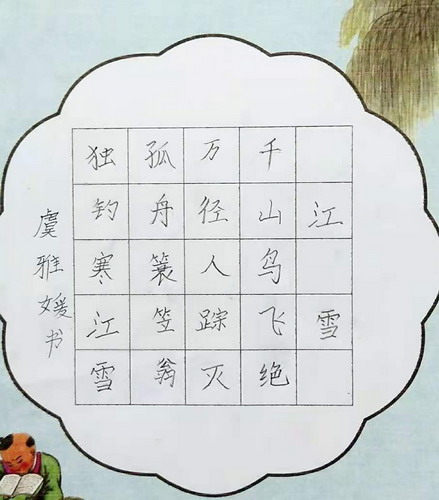 江雪
千山鸟飞绝
万径人踪灭
孤舟蓑笠翁
独钓寒江雪
虞雅媛书